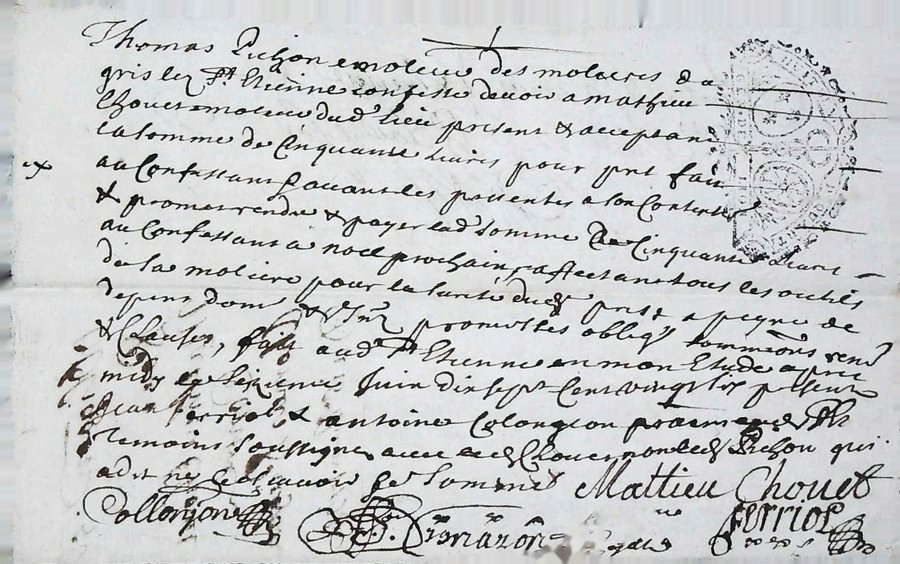 Thomas Pichon emoleur des molieres da
gris ley St. Etienne confesse devoir a mathieu
Chouet emoleur dud. lieu present & acceptant
la somme de Cinquante livres pour pret fait
au Confessant avant les presentes a son Contentemt
& promet rendre & payer lad. somme de Cinquante livres
au Confessant a noel prochain, affectant tous les outils
de la moliere pour la sureté dud. pret a peyne de
depens dom. & promesses oblig. sommions renō
& Clauses, fait aud. St Etienne en mon Etude apres
midy le Sezieme Juin dix sept Cent vingt six presents
Jean ferriol & antoine Colongeon
temoins soussignes avec led. Chouet non led. Pichon qui
a dit ne le scavoir de somme
Mattieu Chouet
Collonjon
ferriol